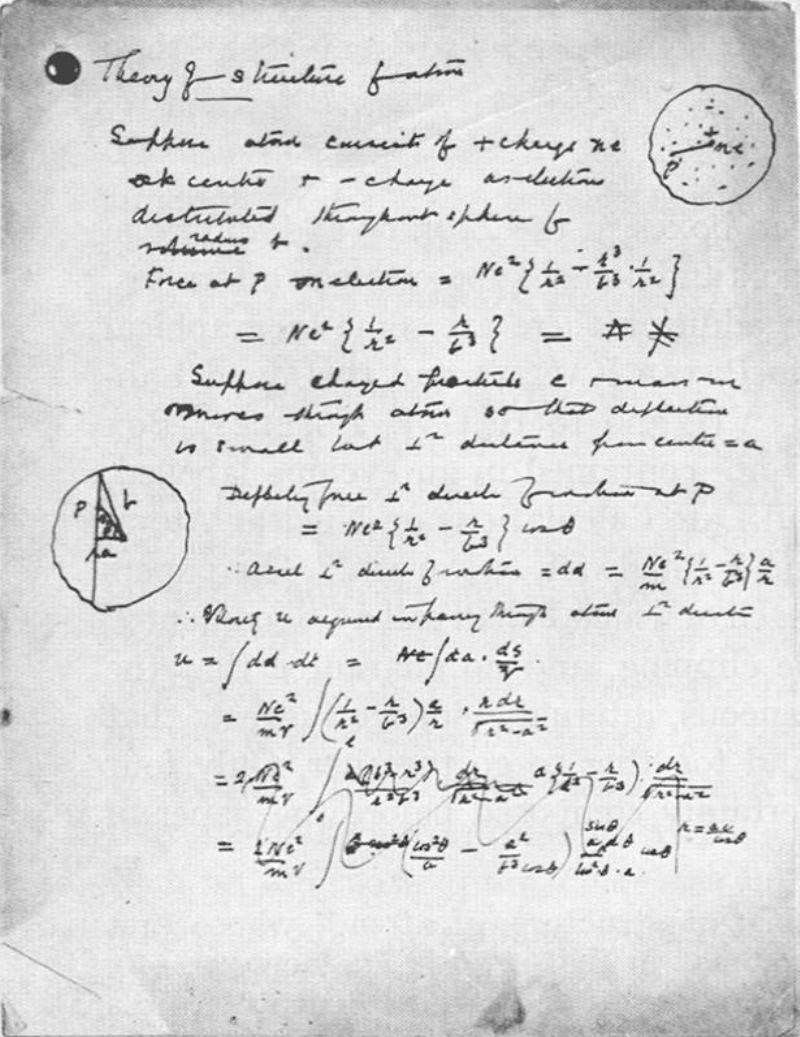 Theory of structure of atom
Suppose atom consists of + charge ne
at centre + - charge as electrons
distributed throughout sphere of
radius b.
Force at P on electron = Ne² { 1/r² - r³/b³ · 1/r² }
= Ne² { 1/r² - r/b³ } =
Suppose charged particle e + mass m
moves through atom so that deflection
is small but ⊥ʳ distance from centre = a
Deflecting force ⊥ʳ direction of motion at P
= Ne² { 1/r² - r/b³ } cos θ
∴ accel ⊥ʳ direction of motion = dd = Ne²/m { 1/r² - r/b³ } a/r
∴ Velocity u acquired in passing through atom ⊥ʳ direction
u = ∫ dd · dt = ∫ da · ds/v
= Ne²/mV ∫ ( 1/r² - r/b³ ) a/r · r dr/√(r² - a²)
= 2 Ne²/mV ∫ dr/√(r² - a²) a { 1/r² - r/b³ } · dr/√(r² - a²)
= 2Ne²/mV ∫ ( cos²θ/a - a²/b³ cos θ ) sin θ a dθ cos θ
+ ne
P
P b
θ
a